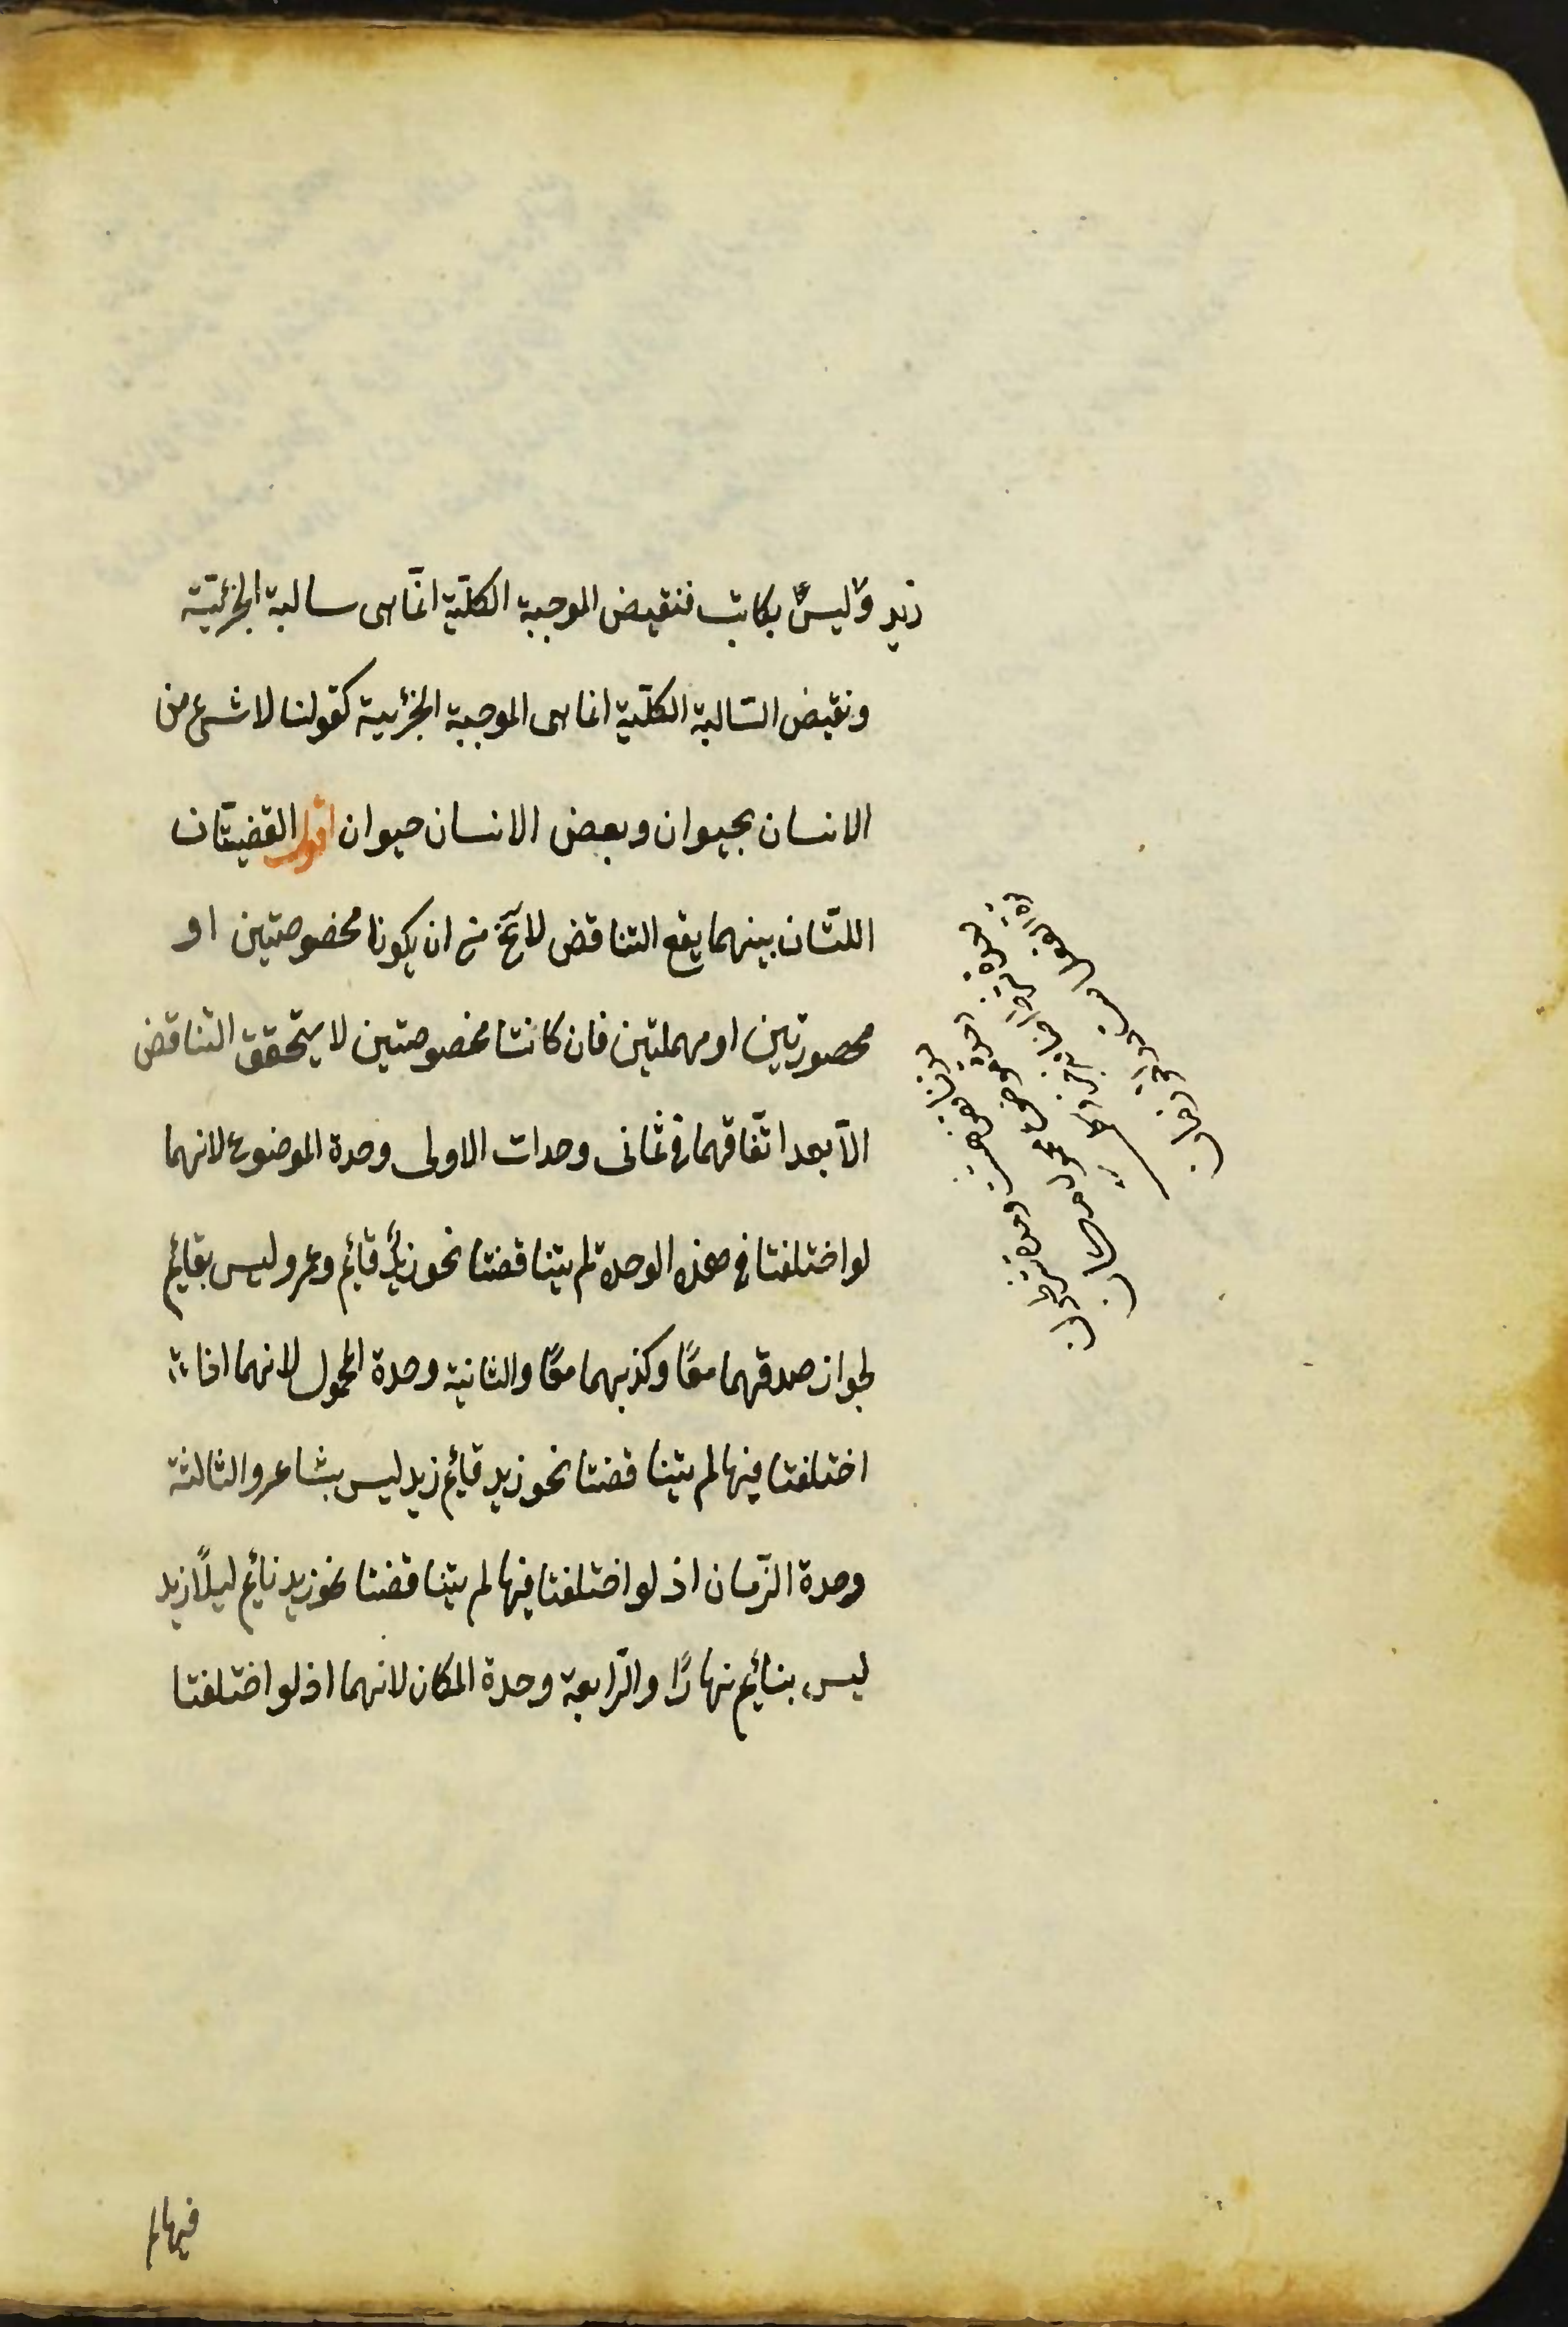 زيد وليس بكاتب فنقيض الموجبة الكلّية انّما هى سالبة الجزئيّة
ونقيض السّالبة الكلّية انما هى الموجبة الجزئية كقولنا لا شئ من
الانسان بحيوان وبعض الانسان حيوان اقول القضيتان
اللتان بينهما يقع التناقض لا يخ من ان يكونا مخصوصتين او
محصورتين او مهملتين فان كانتا مخصوصتين لا يتحقق التناقض
الّا بعد اتّفاقهما فى ثمانى وحدات الاولى وحدة الموضوع لانهما
لو اختلفتا فى هذه الوحدة لم يتناقضتا نحو زيد قائم وعمرو ليس بقائم
لجواز صدقهما معًا وكذبهما معًا والثانية وحدة المحمول لانهما اذا
اختلفتا فيها لم يتناقضتا نحو زيد قائم زيد ليس بشاعر والثالثة
وحدة الزّمان اذ لو اختلفتا فيها لم يتناقضتا نحو زيد نائم ليلًا زيد
ليس بنائم نهارًا والرّابعة وحدة المكان لانهما اذ لو اختلفتا
فيها لم